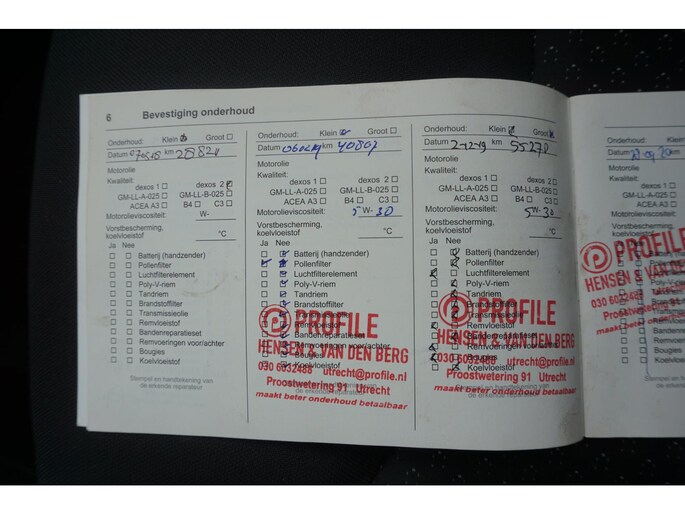 6 Bevestiging onderhoud
Onderhoud: Klein Groot
Datum km 28820
Motorolie
Kwaliteit:
dexos 1 dexos 2
GM-LL-A-025 GM-LL-B-025
ACEA A3 B4 C3
Motorolieviscositeit: W-
Vorstbescherming,
koelvloeistof °C
Ja Nee
Batterij (handzender)
Pollenfilter
Luchtfilterelement
Poly-V-riem
Tandriem
Brandstoffilter
Transmissieolie
Remvloeistof
Bandenreparatieset
Remvoeringen voor/achter
Bougies
Koelvloeistof
Stempel en handtekening van
de erkende reparateur
Onderhoud: Klein Groot
Datum km 40807
Motorolie
Kwaliteit:
dexos 1 dexos 2
GM-LL-A-025 GM-LL-B-025
ACEA A3 B4 C3
Motorolieviscositeit: 5W-30
Vorstbescherming,
koelvloeistof °C
Ja Nee
Batterij (handzender)
Pollenfilter
Luchtfilterelement
Poly-V-riem
Tandriem
Brandstoffilter
Transmissieolie
Remvloeistof
Bandenreparatieset
Remvoeringen voor/achter
Bougies
Koelvloeistof
PROFILE
HENSEN & VAN DEN BERG
030 6032488 utrecht@profile.nl
Proostwetering 91 Utrecht
maakt beter onderhoud betaalbaar
Onderhoud: Klein Groot
Datum 2-12-19 km 55278
Motorolie
Kwaliteit:
dexos 1 dexos 2
GM-LL-A-025 GM-LL-B-025
ACEA A3 B4 C3
Motorolieviscositeit: 5W-30
Vorstbescherming,
koelvloeistof °C
Ja Nee
Batterij (handzender)
Pollenfilter
Luchtfilterelement
Poly-V-riem
Tandriem
Brandstoffilter
Transmissieolie
Remvloeistof
Bandenreparatieset
Remvoeringen voor/achter
Bougies
Koelvloeistof
PROFILE
HENSEN & VAN DEN BERG
030 6032488 utrecht@profile.nl
Proostwetering 91 Utrecht
maakt beter onderhoud betaalbaar
Stempel en handtekening van
de erkende reparateur
Onderhoud:
Datum
Motorolie
Kwaliteit:
GM-LL-A
ACE
Motorolieviscos
Vorstbescherm
koelvloeistof
Ja Nee
PROFILE
HENSEN & VAN DE
030 6032488
Proostwe
maakt beter